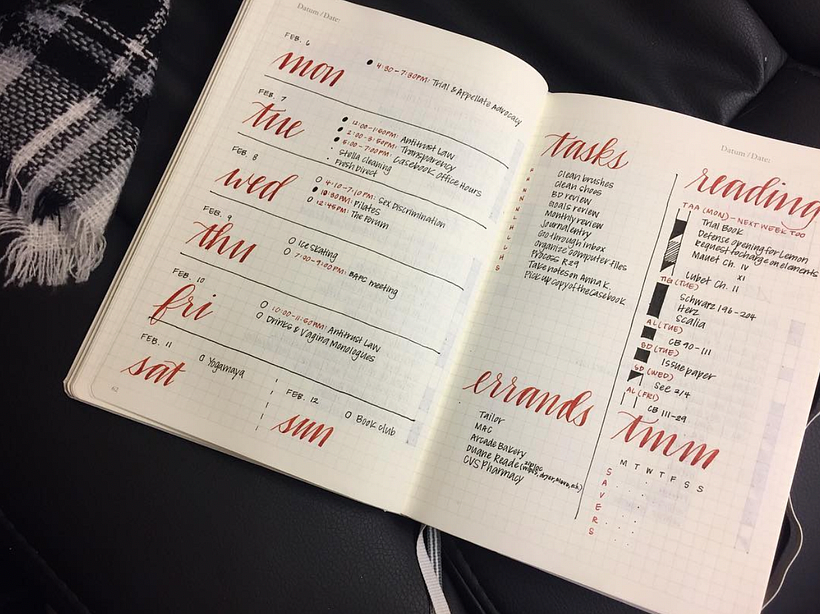 Datum / Date:
FEB. 6
mon
4:30-7:30PM: Trial & Appellate Advocacy
FEB. 7
tue
12:00-1:50PM: Antitrust Law
2:00-3:50PM: Transparency
5:00-7:00PM: Casebook office Hours
Stella cleaning
Fresh Direct
FEB. 8
wed
4:10-7:10PM: Sex Discrimination
Pilates
12:45PM: The Forum
FEB. 9
thu
Ice skating
7:00-9:00PM: meeting
FEB. 10
fri
10:00-11:50PM: Antitrust Law
Drinks & Vagina Monologues
FEB. 11
sat
Yogamaya
FEB. 12
sun
Book club
62
Datum / Date:
tasks
Clean brushes
Clean shoes
BD review
Goals review
Monthly review
Journal entry
Go through inbox
Organize computer files
Process R29
Take notes on Anna K.
Pick up copy of the casebook
errands
Tailor
MAC
Arcade Bakery
Duane Reade
CVS Pharmacy
reading
TAA (MON) - NEXT WEEK TOO
Trial Book
Defense opening for Lemon
Request to charge on elements
Mauet Ch. IV
XI
Lubet Ch. 11
(TUE)
Schwarz 196-204
Herz
Scalia
AL (TUE)
CB 90-111
(TUE)
Issue paper
SD (WED)
See 2/4
AL (FRI)
CB 111-29
tmm
M T W T F S S
S
A
V
E
R
S